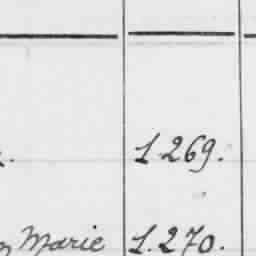 1269.
Marie 1.270.